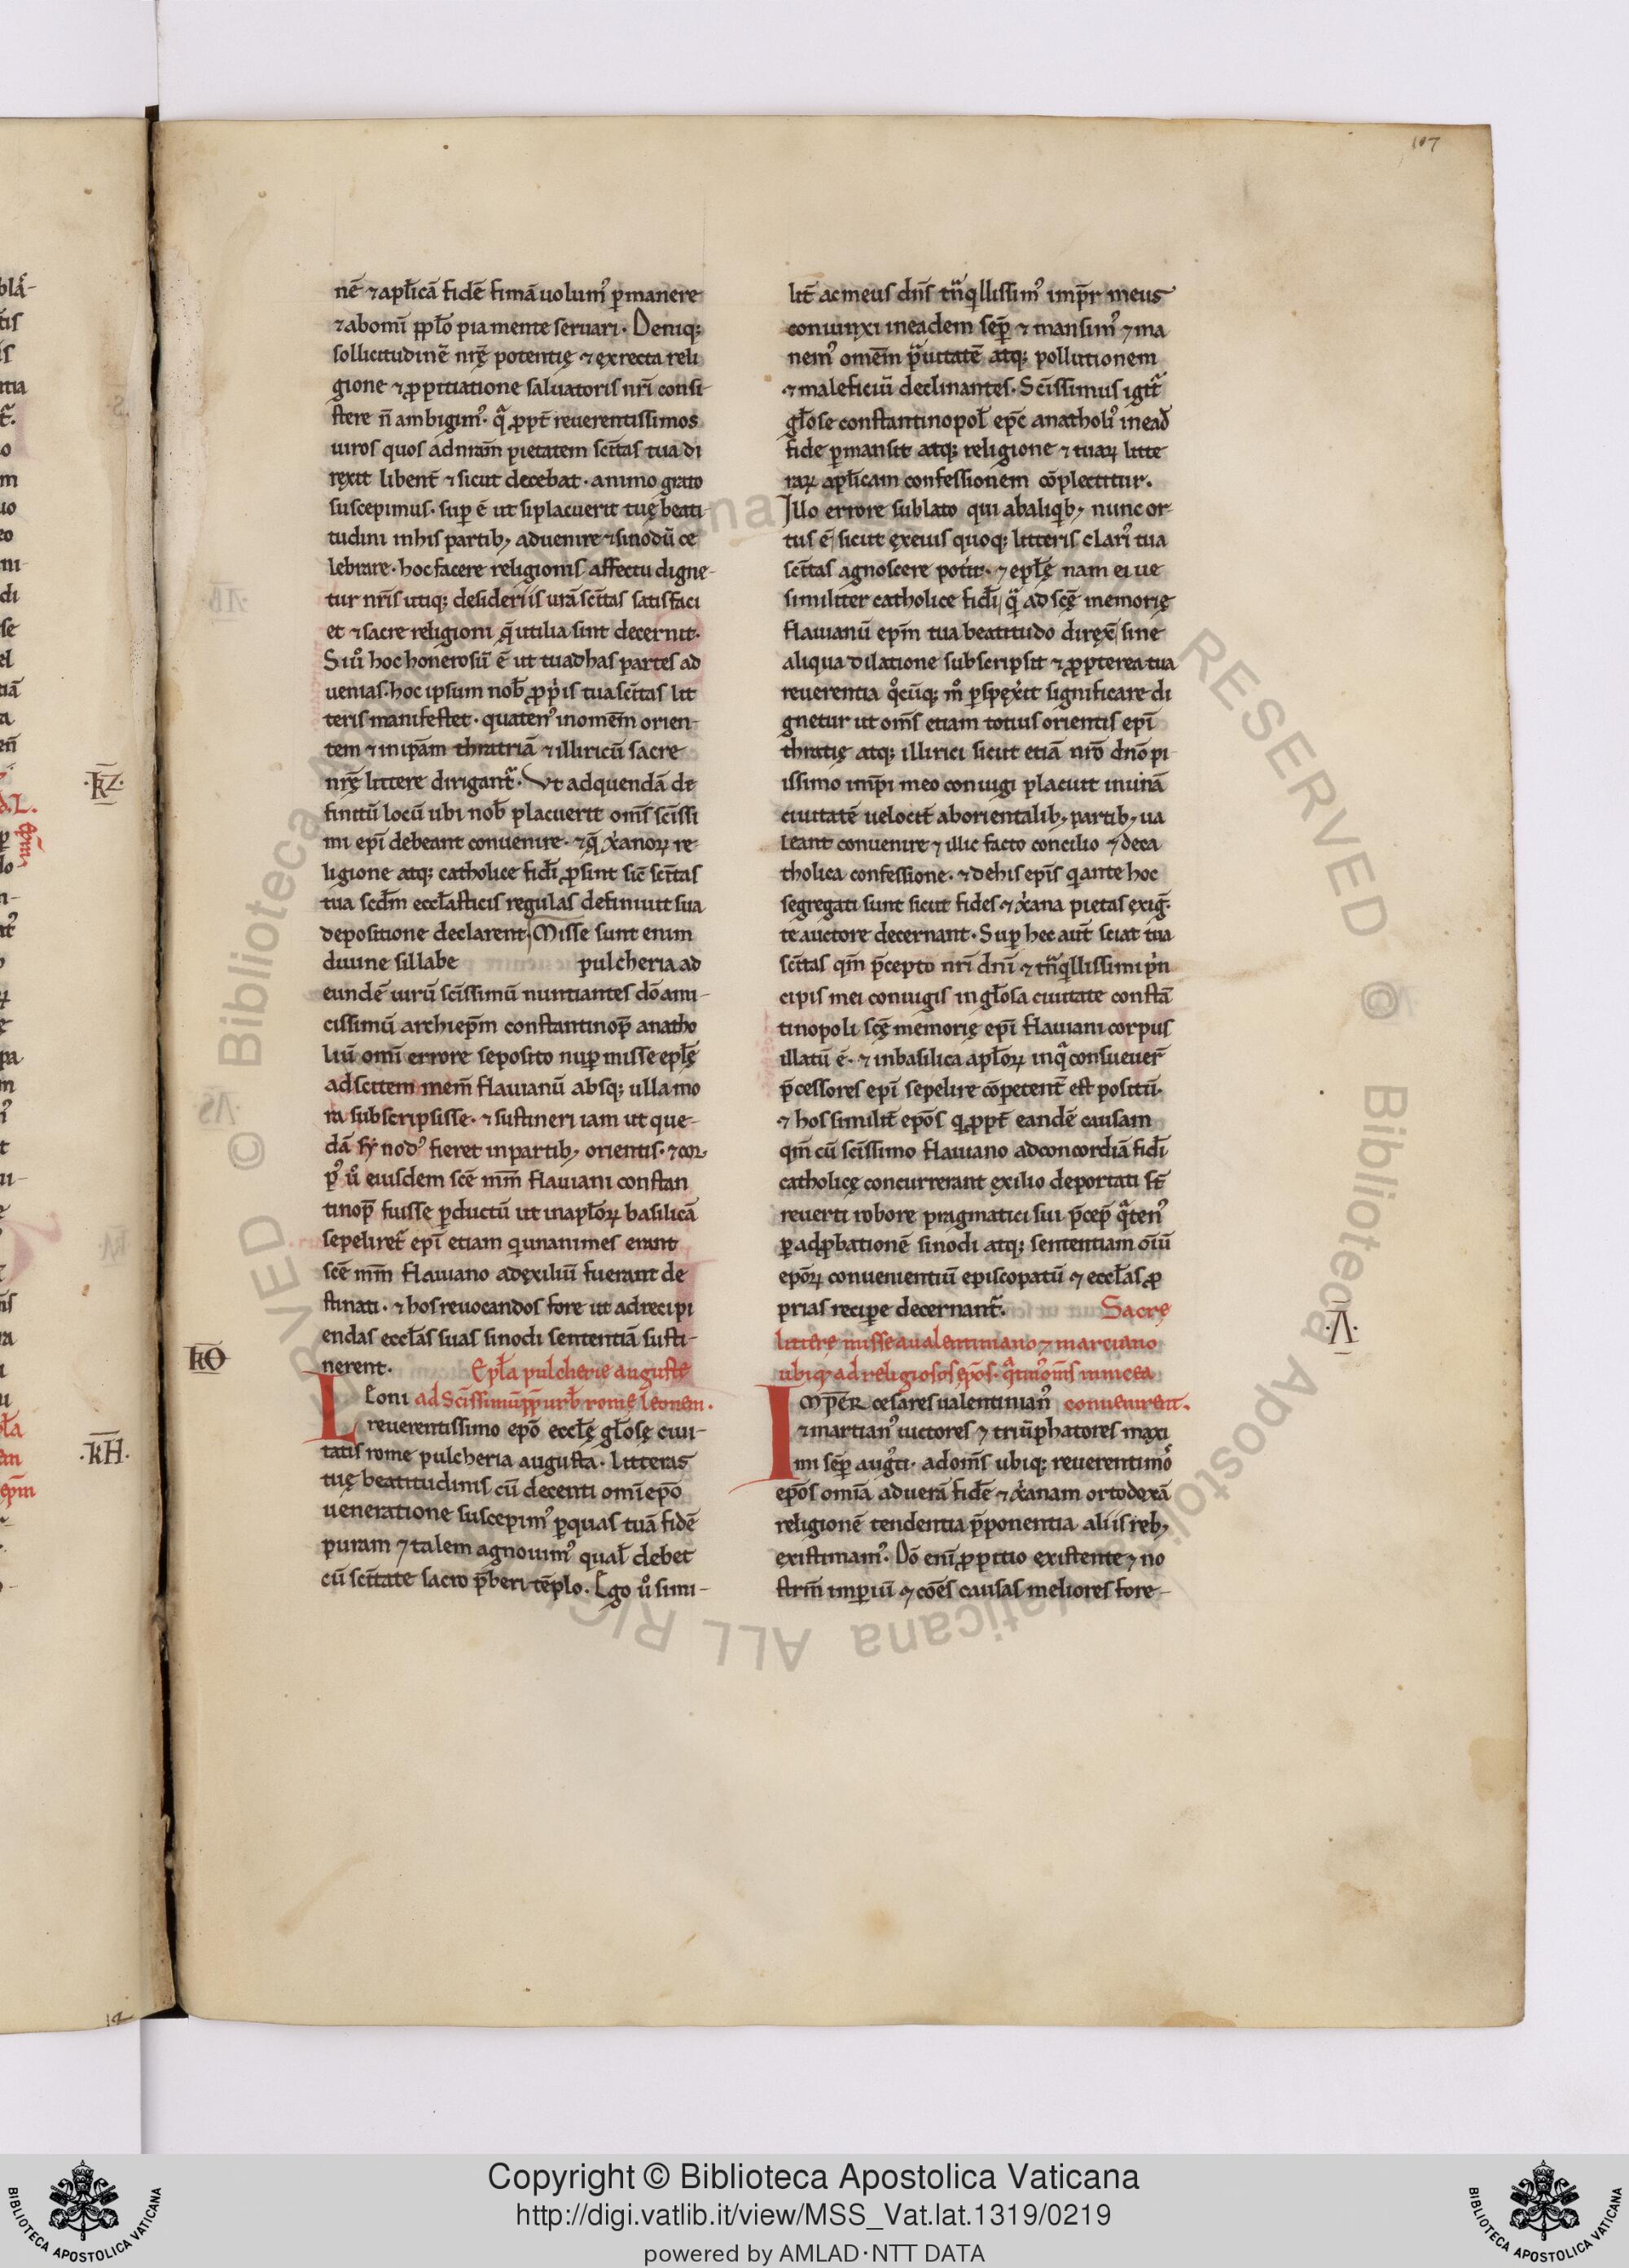 107
nē ⁊ apl̄icā fidē firmā uolum᷒ ꝑmanere
⁊ ab omī pp̄lo pia mente seruari. Deniq;
sollicitudinē nrę̄ potentię ⁊ ex recta reli
gione ⁊ ꝓpitiatione saluatoris nrī consi
stere n̄ ambigim᷒. q̄ ꝓpt̄ reuerentissimos
uiros quos ad nram̄ pietatem scītas tua di
rexit libent̄ ⁊ sicut decebat. animo grato
suscepimus. suꝑ ē ut si placuerit tuę beati-
tudini in his partib; aduenire ⁊ sinodū ce
lebrare. hoc facere religionis affectu digne-
tur nrīs utiq; desideriis urā scītas satisfaci
et ⁊ sacre religioni q̄ utilia sint decernit.
Si ů hoc honerosū ē ut tu ad has partes ad
uenias. hoc ipsum nob̄ ꝓpiis tua scītas lit
teris manifestet. quaten᷒ in omēm orien-
tem ⁊ in ipām thratriā ⁊ illiricū sacre
nrę̄ littere dirigant᷑. Vt ad quendā de
finitū locū ubi nob̄ placuerit omīs scīssi
mi epī debeant conuenire. ⁊ q̄ x̄anoꝝ re-
ligione atq; catholice fidī ꝓsint sic̄ scītas
tua scdm̄ eccl̄asticis regulas definiuit sua
depositione declarent. Misse sunt enim
diuine sillabe pulcheria ad
eundē uirū scīssimū nuntiantes dō ami-
cissimū archiepm̄ constantinop̄ anatho
liū omī errore seposito nuꝑ misse epl̄ę
ad scītem mem̄ flauianū absq; ulla mo
ra subscripsisse. ⁊ sustineri iam ut que-
dā synod᷒ fieret in partib; orientis. ⁊ cor-
p᷒ ů eiusdem scē mm̄ flauiani constan
tinop̄ fuisse ꝑductū ut in apl̄oꝝ basilicā
sepeliret᷑ epī etiam q̇ unanimes erant
scē mm̄ flauiano ad exiliū fuerant de
stinati. ⁊ hos reuocandos fore ut ad recipi
endas eccl̄as suas sinodi sententiā susti-
nerent. Epl̄a pulcherie auguste
Leoni ad scīssimū pp̄ urb̄ rome leonem.
reuerentissimo epō eccl̄ę gl̄osę ciui-
tatis rome pulcheria augusta. Litteras
tuę beatitudinis cū decenti omī epō
ueneratione suscepim᷒ ꝑ quas tuā fidē
puram ⁊ talem agnouim᷒ qual̄ debet
cū scītate sacro p̄beri tēplo. Ego ů simi-
·K̄Θ
lit̄ ac meus dn̄s tn̄q̇llissim᷒ imp̄r meus
coniunxi in eadem sep̄ ⁊ mansim᷒ ⁊ ma
nem᷒ omēm p̄uitatē atq; pollutionem
⁊ maleficiū declinantes. Scīssimus igit᷑
gl̄ose constantinopol̄ epc̄ anatholi᷒ in ead̄
fide ꝑmansit atq; religione ⁊ tuaꝝ litte
raꝝ apl̄icam confessionem cōplectitur.
Illo errore sublato qui ab aliq̇b; nunc or
tus ē sicut ex eius quoq; litteris clari᷒ tua
scītas agnoscere potir̄. ⁊ epl̄ę nam ei ue
similiter catholice fidī q̄ ad scę̄ memorię
flauianū epm̄ tua beatitudo direx̄ sine
aliqua dilatione subscripsit ⁊ ꝓpterea tua
reuerentia q̊cūq; m̊ ꝑspexit significare di
gnetur ut omīs etiam totius orientis epī
thratię atq; illirici sicut etiā nrō dnō pi
issimo imp̄i meo coniugi placuit in unā
ciuitatē uelocit̄ ab orientalib; partib; ua
leant conuenire ⁊ illic facto concilio ⁊ de ca
tholica confessione. ⁊ de his epīs q̇ ante hoc
segregati sunt sicut fides ⁊ x̄ana pietas exiḡ.
te auctore decernant. Suꝑ hec aut̄ sciat tua
scītas qm̄ p̄cepto nrī dnī ⁊ tn̄q̇llissimi p̄in
cipis mei coniugis in gl̄osa ciuitate constā
tinopoli scę̄ memorię epī flauiani corpus
illatū ē. ⁊ in basilica apl̄oꝝ in q̄ consueuer̄
p̄cessores epī sepelire cōpetent̄ est positū.
⁊ hos similit̄ epōs q̇ ꝓpt̄ eandē causam
qm̄ cū scīssimo flauiano ad concordiā fidī
catholicę concurrerant exilio deportati st̄
reuerti robore pragmatici sui p̄cep̄ q̄ten᷒
ꝑ adꝓbationē sinodi atq; sententiam oīū
epōꝝ conuenientiū episcopatū ⁊ eccl̄as ꝓ
prias recipe decernant᷑. Sacre
littere misse a ualentiniano ⁊ marciano
ubiq; ad religiosos epōs. q̄tin᷒ omīs in nicea
IMPER̄ cesares ualentinian᷒ conuenirent.
⁊ martian᷒ uictores ⁊ triūphatores maxi
mi sēp̄ aug᷒ti. ad omīs ubiq; reuerentimo᷒
epōs omīa ad uerā fidē ⁊ x̄anam ortodoxā
religionē tendentia p̄ponentia aliis reb;
existimam᷒. Dō enī ꝓpitio existente ⁊ no
strm̄ impiū ⁊ cōēs causas meliores fore-
·Λ̄·
·K̄Z·
·K̄H·
12
Copyright © Biblioteca Apostolica Vaticana
http://digi.vatlib.it/view/MSS_Vat.lat.1319/0219
powered by AMLAD·NTT DATA
BIBLIOTECA APOSTOLICA VATICANA
BIBLIOTECA APOSTOLICA VATICANA